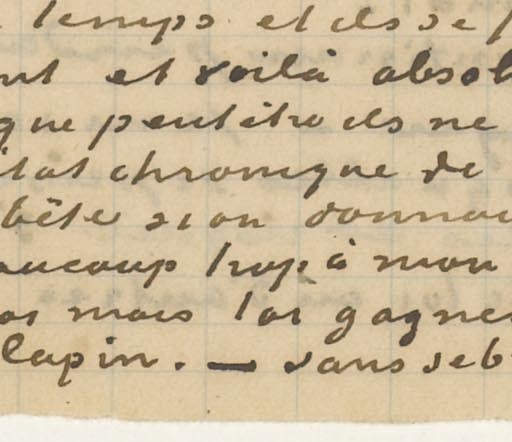 temps et ils se
nt et voilà absol
que peut être ils ne
état chronique de
bête si on donnai
aucoup trop à mon
as mais toi gagner
lapin. — sans seb